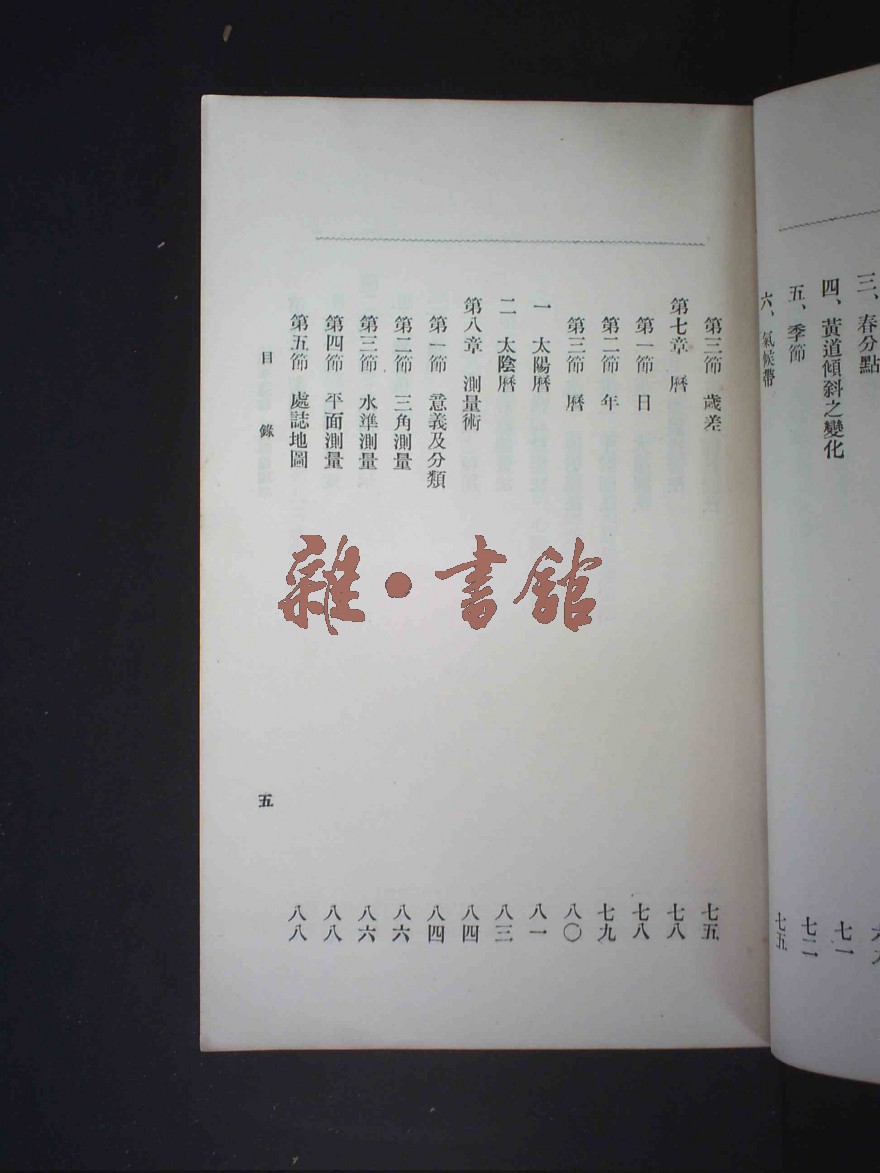 三、春分點
四、黃道傾斜之變化 七一
五、季節 七二
六、氣候帶 七五
第三節 歲差 七五
第七章 曆 七八
第一節 日 七八
第二節 年 七九
第三節 曆 八〇
一 太陽曆 八一
二 太陰曆 八三
第八章 測量術 八四
第一節 意義及分類 八四
第二節 三角測量 八六
第三節 水準測量 八六
第四節 平面測量 八八
第五節 處誌地圖 八八
目錄 五
雜·書館